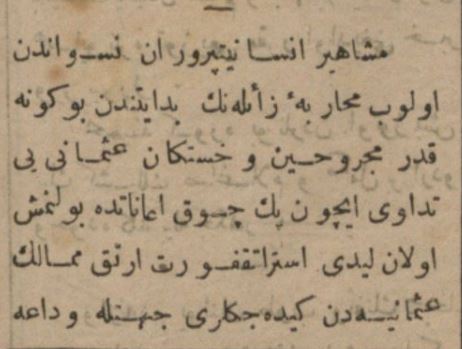 مشاهير انسانيتپروران نسواندن
اولوب محاربهٔ زائله‌نك بدايتندن بوكونه
قدر مجروحين و خستكان عثمانی يی
تداوی ايچون پك چوق اعاناتده بولنمش
اولان ليدی استراتقفورت ارتق ممالك
عثمانيه‌دن كيده‌جكلری جهتله وداعه